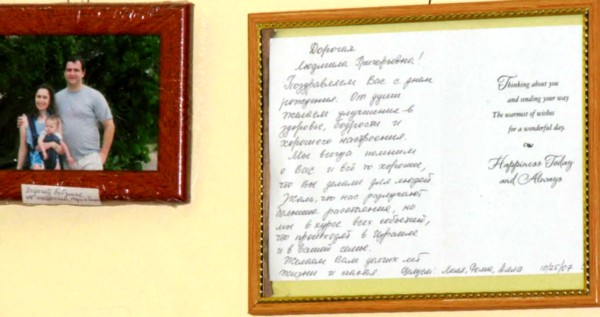 Дорогая
Людмила Григорьевна!
Поздравляем Вас с днем
рождения. От души
желаем улучшения в
здоровье, бодрости и
хорошего настроения.
Мы всегда помним
о Вас и всё то хорошее,
что Вы делали для людей
Жаль, что нас разлучают
большие расстояния, но
мы в курсе всех событий,
что происходят в Израиле
и в Вашей семье.
Желаем Вам долгих лет
жизни и
Алла 10/25/07
Thinking about you
and sending your way
The warmest of wishes
for a wonderful day.
Happiness Today
and Always